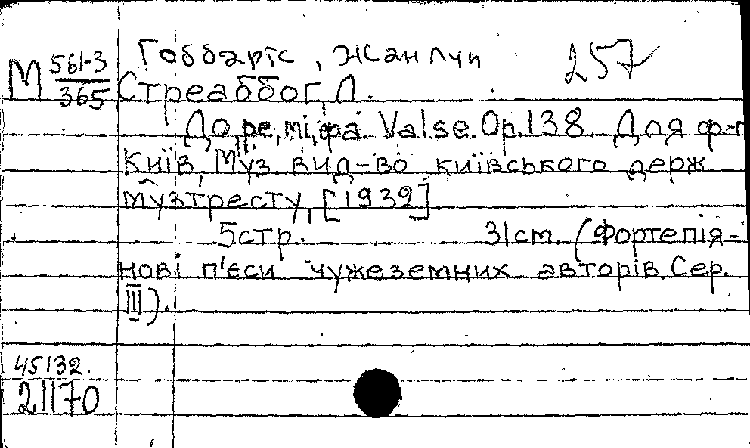 Гоббартс, Жан Луи 257
М 561-3
365
Стреаббог, Л.
До, ре, мі, фа. Valse. Op. 138. Для ф-п
Київ, Муз. вид-во київського держ
музтресту, [1932]
5стр. 31см. (Фортепія-
нові п'єси чужеземних авторів. Сер.
III).
45132.
21170